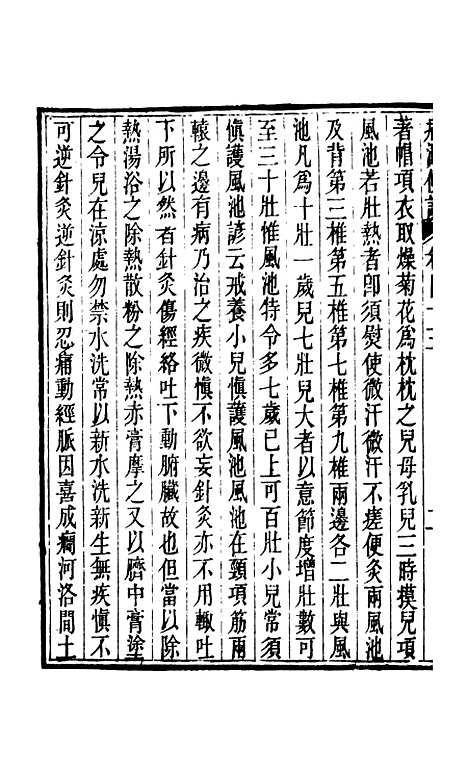 著帽項衣取燥菊花爲枕枕之兒母乳兒三時摸兒項
風池若壯熱者卽須熨使微汗微汗不瘥便灸兩風池
及背第三椎第五椎第七椎第九椎兩邊各二壯與風
池凡爲十壯一歲兒七壯兒大者以意節度增壯數可
至三十壯惟風池特令多七歲已上可百壯小兒常須
慎護風池諺云戒養小兒慎護風池風池在頸項筋兩
轅之邊有病乃治之疾微慎不欲妄針灸亦不用輙吐
下所以然者針灸傷經絡吐下動腑臟故也但當以除
熱湯浴之除熱散粉之除熱赤膏摩之又以臍中膏塗
之令兒在涼處勿禁水洗常以新水洗新生無疾慎不
可逆針灸逆針灸則忍痛動經脈因喜成癇河洛間土